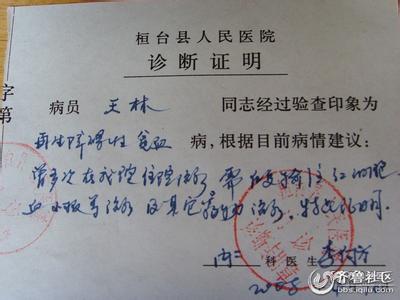 桓台县人民医院
诊断证明
字
第
病员 王林 同志经过验查印象为
再生障碍性贫血 病,根据目前病情建议:
曾多次在我院住院治疗 需反复输注红细胞
血小板等治疗 及其它药物治疗。特此证明
内二 科医生
2008
齐鲁社区
qilu.com